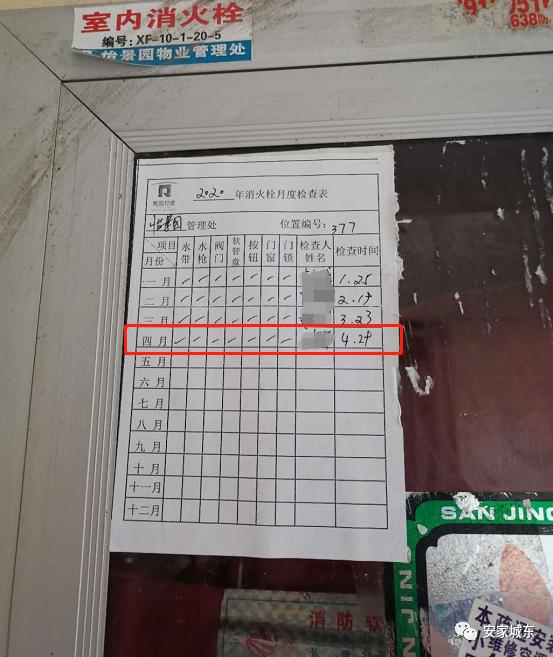 室内消火栓
编号：XF-10-1-20-5
怡景园物业管理处
638防
2020 年消火栓月度检查表
怡景园 管理处 位置编号: 377
项目 月份 水带 水枪 阀门 软管盘 按钮 门窗 门锁 检查人姓名 检查时间
一月 ✓ ✓ ✓ ✓ ✓ ✓ ✓ 1.25
二月 ✓ ✓ ✓ ✓ ✓ ✓ ✓
三月 ✓ ✓ ✓ ✓ ✓ ✓ ✓ 3.23
四月 ✓ ✓ ✓ ✓ ✓ ✓ ✓
五月
六月
七月
八月
九月
十月
十一月
十二月
SAN JING
消防软
安家城东